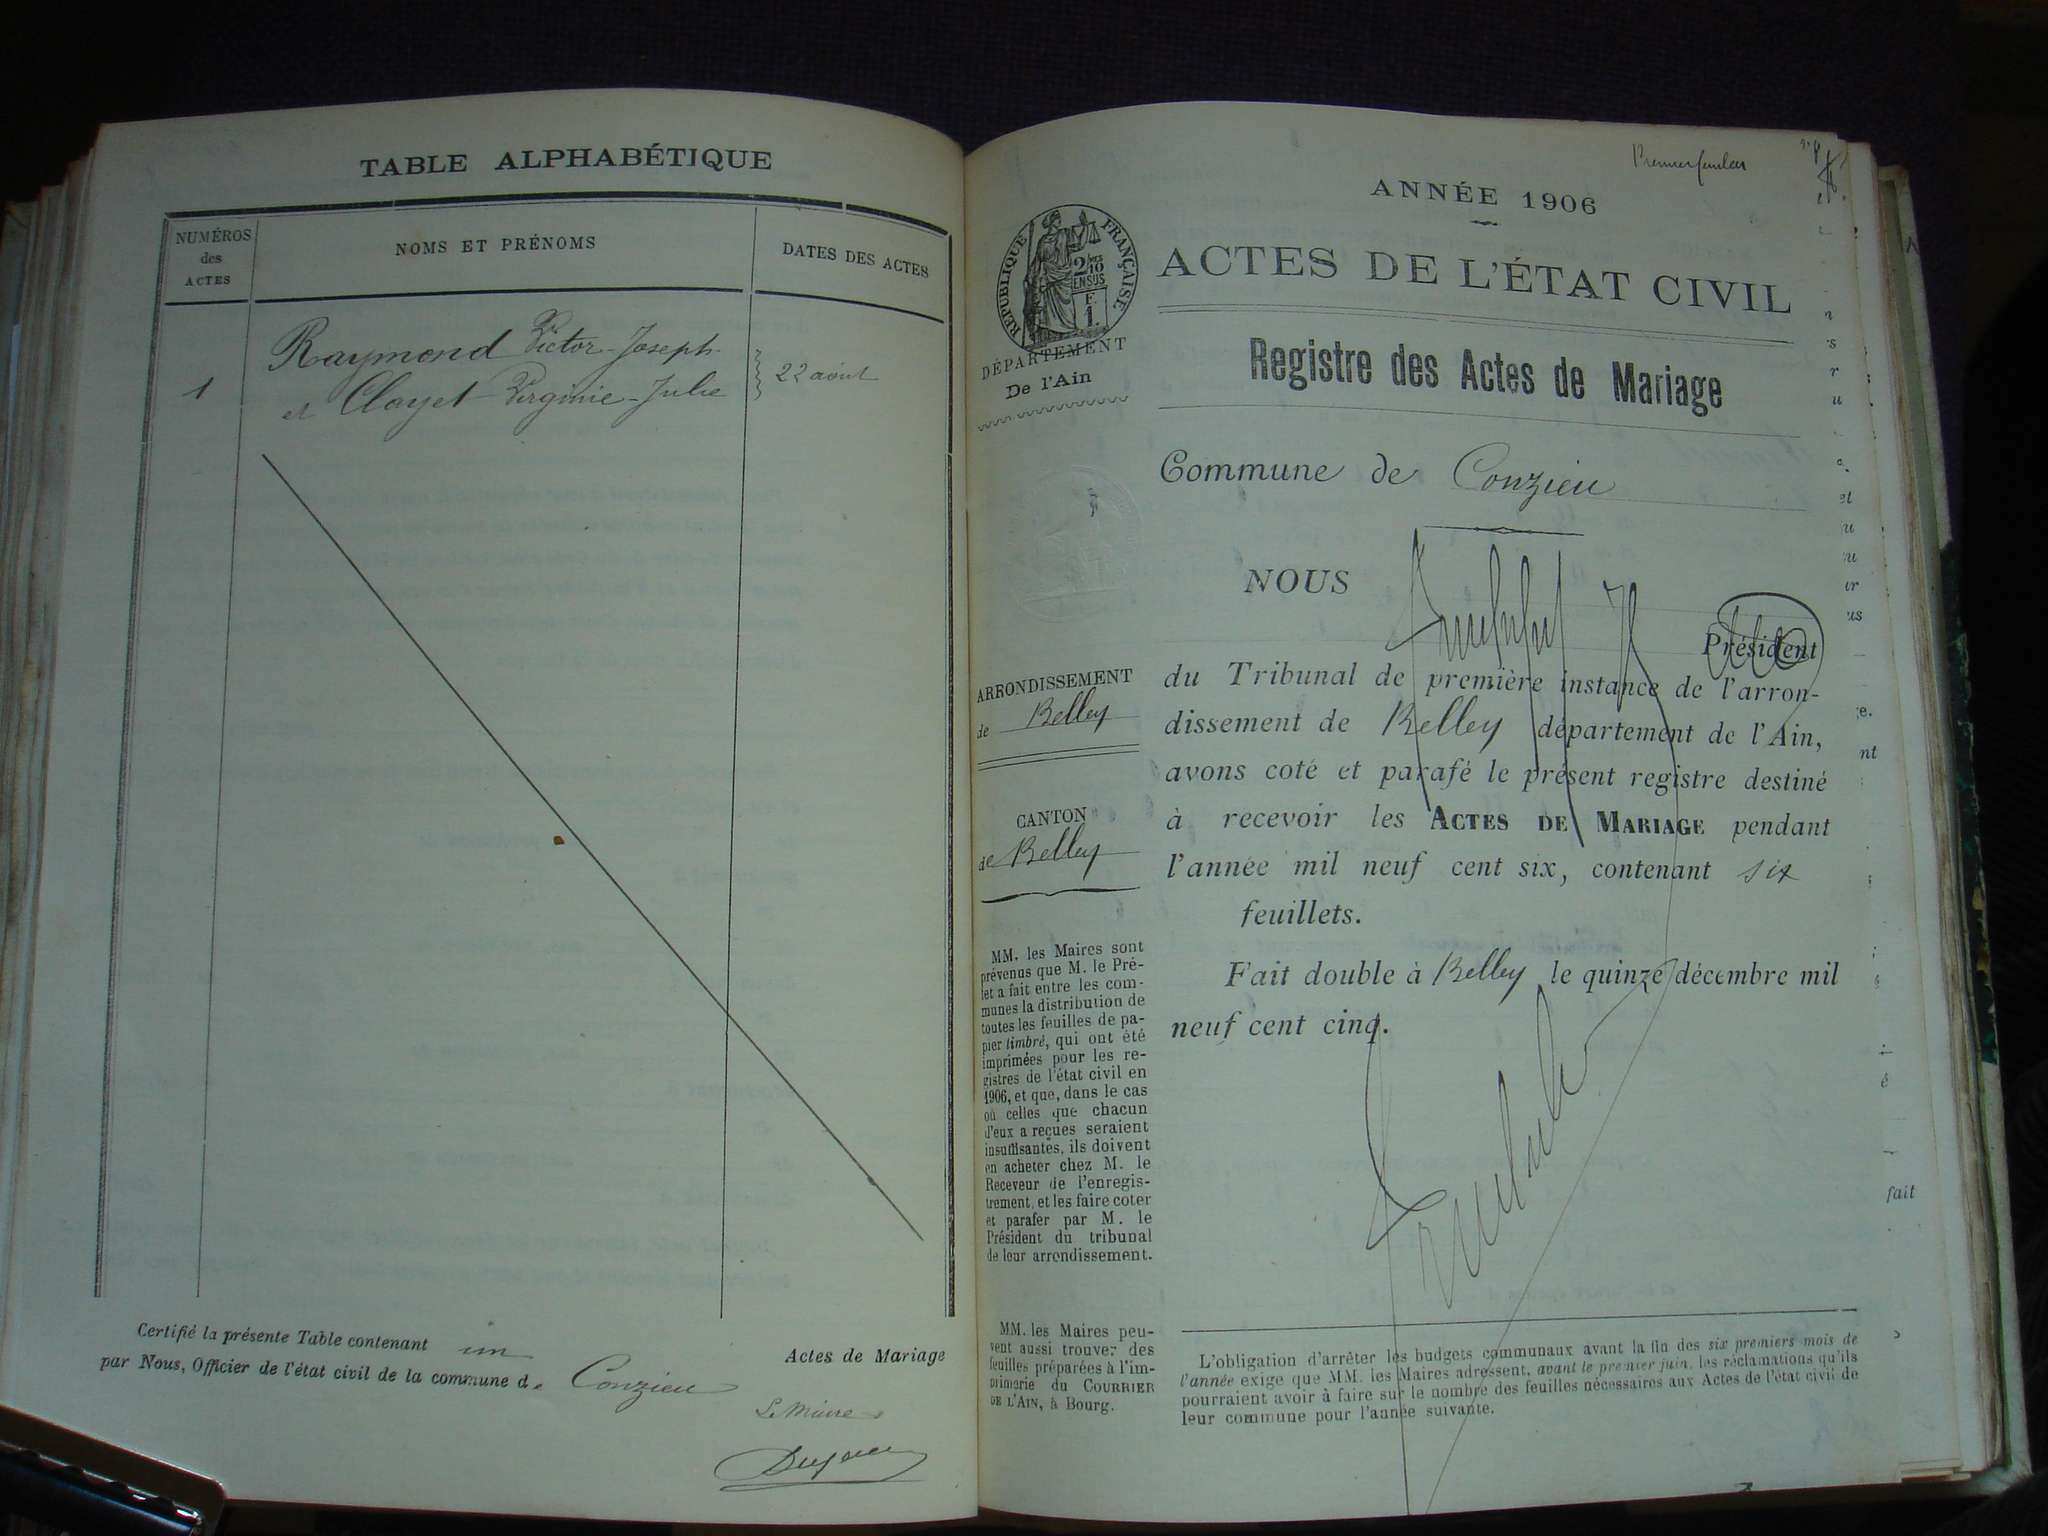 TABLE ALPHABÉTIQUE
NUMÉROS
des
ACTES
NOMS ET PRÉNOMS
DATES DES ACTES
1
Raymond Victor-Joseph
et Clayet Virginie-Julie
22 août
Certifié la présente Table contenant un Actes de Mariage
par Nous, Officier de l'état civil de la commune de Conzieu
Le Maire
Premier feuillet
ANNÉE 1906
ACTES DE L'ÉTAT CIVIL
RÉPUBLIQUE FRANÇAISE
2/10
EN SUS
F.
1.
DÉPARTEMENT
De l'Ain
Registre des Actes de Mariage
Commune de Conzieu
NOUS
Président
du Tribunal de première instance de l'arron-
dissement de Belley département de l'Ain,
avons coté et parafé le présent registre destiné
à recevoir les ACTES DE MARIAGE pendant
l'année mil neuf cent six, contenant six
feuillets.
Fait double à Belley le quinze décembre mil
neuf cent cinq.
ARRONDISSEMENT
de Belley
CANTON
de Belley
MM. les Maires sont
prévenus que M. le Pré-
fet a fait entre les com-
munes la distribution de
toutes les feuilles de pa-
pier timbré, qui ont été
imprimées pour les re-
gistres de l'état civil en
1906, et que, dans le cas
où celles que chacun
d'eux a reçues seraient
insuffisantes, ils doivent
en acheter chez M. le
Receveur de l'enregis-
trement, et les faire coter
et parafer par M. le
Président du tribunal
de leur arrondissement.
MM. les Maires peu-
vent aussi trouver des
feuilles préparées à l'im-
primerie du COURRIER
DE L'AIN, à Bourg.
L'obligation d'arrêter les budgets communaux avant la fin des six premiers mois de
l'année exige que MM. les Maires adressent, avant le premier juin, les réclamations qu'ils
pourraient avoir à faire sur le nombre des feuilles nécessaires aux Actes de l'état civil de
leur commune pour l'année suivante.
fait